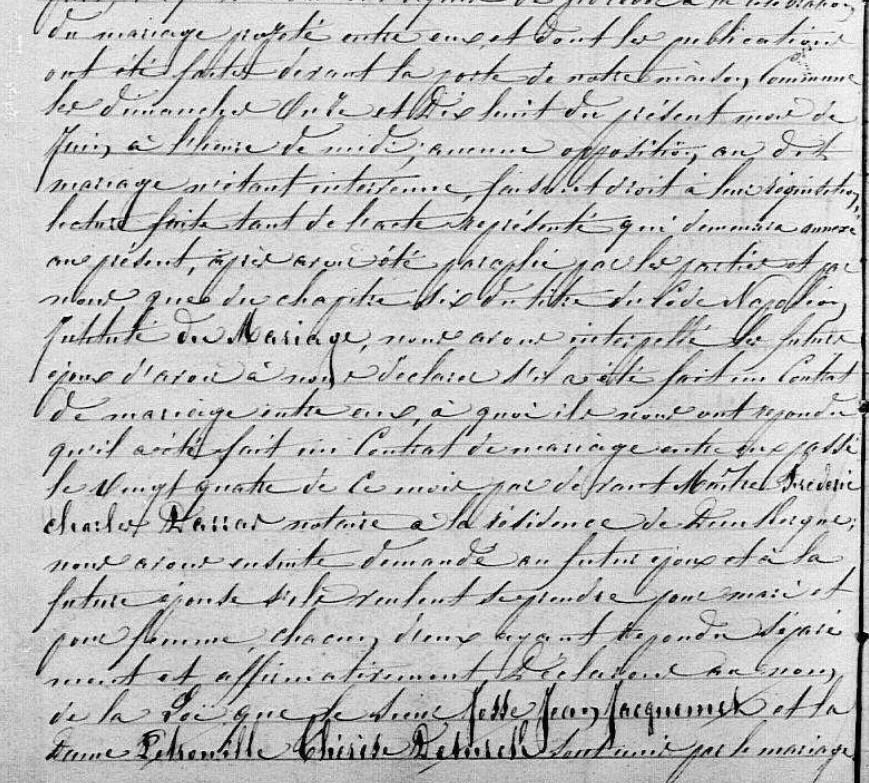 du mariage projeté entre eux, et dont les publications
ont été faites devant la porte de notre maison Commune
les dimanches Onze et Dix huit du présent mois de
Juin, à l'heure de midi; aucune opposition au dit
mariage n'étant intervenue, faisant droit à leur réquisition,
lecture faite tant de l'acte représenté qui demeurera annexé
au présent, après avoir été paraphé par les parties et par
nous que du chapitre six du titre du Code Napoléon,
Intitulé du Mariage, nous avons interpellé les futurs
époux d'avoir à nous déclarer s'il a été fait un Contrat
de mariage entre eux, à quoi ils nous ont répondu
qu'il a été fait un Contrat de mariage entre eux passé
le Vingt quatre de ce mois par devant Maître Frédéric
charles notaire à la résidence de Dunkerque;
nous avons ensuite demandé au futur époux et à la
future épouse s'ils veulent se prendre pour mari et
pour femme, chacun d'eux ayant répondu séparé
ment et affirmativement, Déclarons au nom
de la Loi que le Sieur Josse Jean Jacquemet et la
Dame Pétronille Thérèse sont unis par le mariage